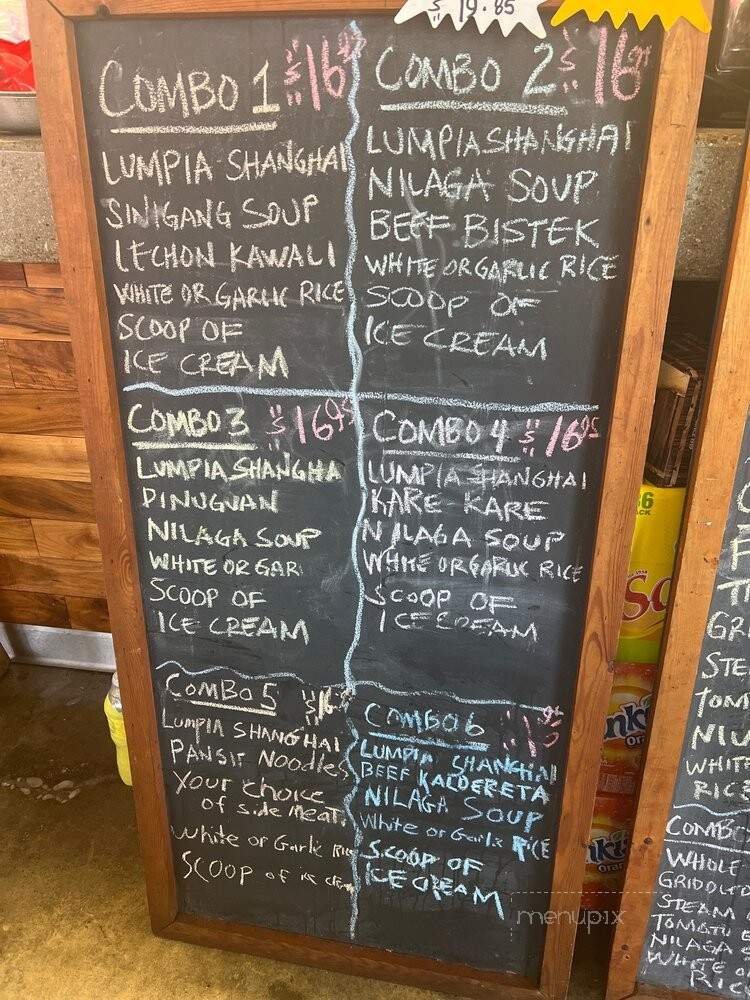 $ 19.85
COMBO 1 $16
LUMPIA SHANGHAI
SINIGANG SOUP
LECHON KAWALI
WHITE OR GARLIC RICE
SCOOP OF
ICE CREAM
COMBO 2 $16
LUMPIA SHANGHAI
NILAGA SOUP
BEEF BISTEK
WHITE OR GARLIC RICE
SCOOP OF
ICE CREAM
COMBO 3 $16
LUMPIA SHANGHA
DINUGUAN
NILAGA SOUP
WHITE OR GAR
SCOOP OF
ICE CREAM
COMBO 4 $16.95
LUMPIA SHANGHAI
KARE-KARE
NILAGA SOUP
WHITE OR GARLIC RICE
SCOOP OF
ICE CREAM
COMBO 5 $16
LUMPIA SHANGHAI
PANSIT NOODLES
Your choice
of side meat.
White or Garlic Rice
SCOOP of ice cream
COMBO 6
LUMPIA SHANGHAI
BEEF KALDERETA
NILAGA SOUP
White or Garlic RICE
SCOOP OF
ICE CREAM
GR
STE
TOM
NIL
WHIT
RIC
COMBO
WHOLE
GRIDDLED
STEAM
TOMATO
NILAGA
WHITE O
RIC
menupix